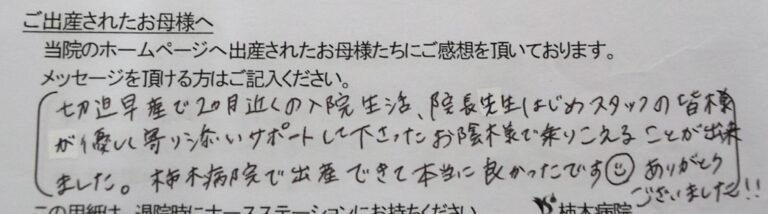 ご出産されたお母様へ
当院のホームページへ出産されたお母様たちにご感想を頂いております。
メッセージを頂ける方はご記入ください。
切迫早産で2ヶ月近くの入院生活、院長先生はじめスタッフの皆様
が優しく寄り添いサポートして下さったお陰様で乗りこえることが出来
ました。柿木病院で出産できて本当に良かったです☺ ありがとう
ございました!!
この用紙は、退院時にナースステーションにお持ちください
柿木病院